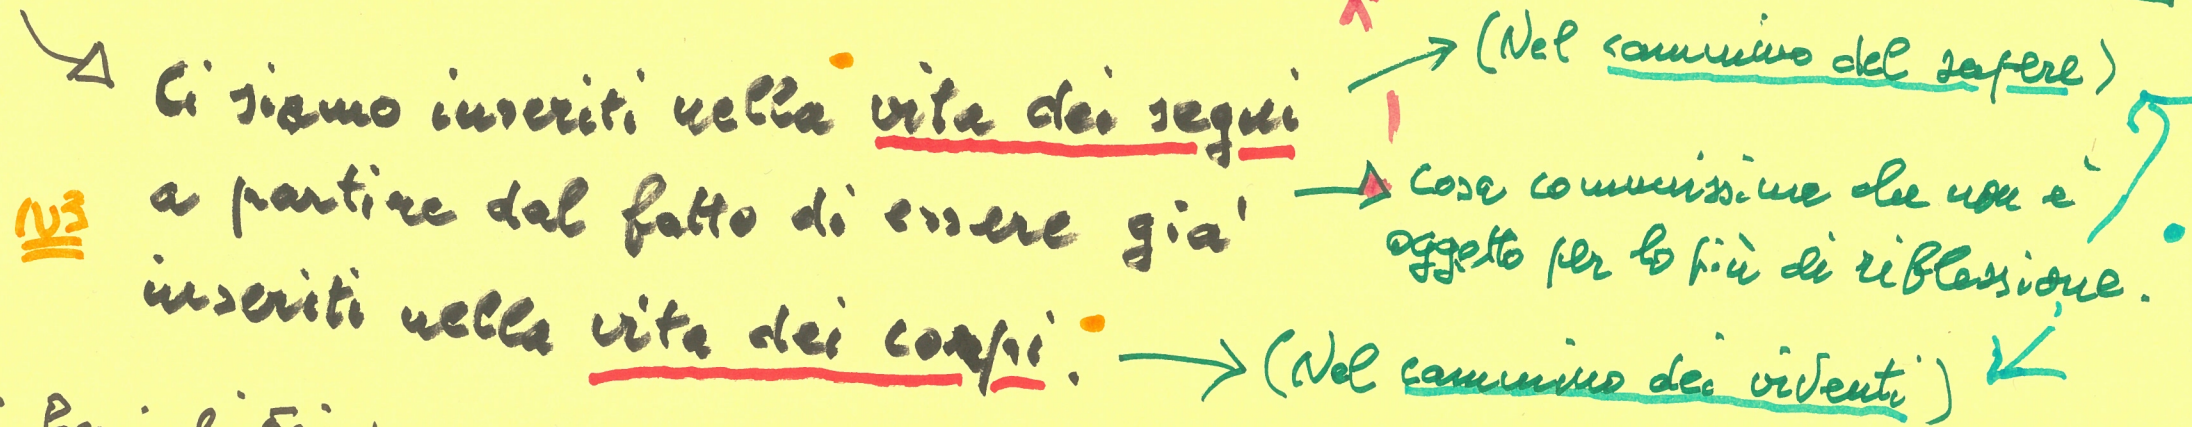 Ci siamo inseriti nella vita dei segni
a partire dal fatto di essere già
inseriti nella vita dei corpi.
N3
(Nel cammino del sapere)
cosa comunissima che non è
oggetto per lo più di riflessione.
(Nel cammino dei viventi)